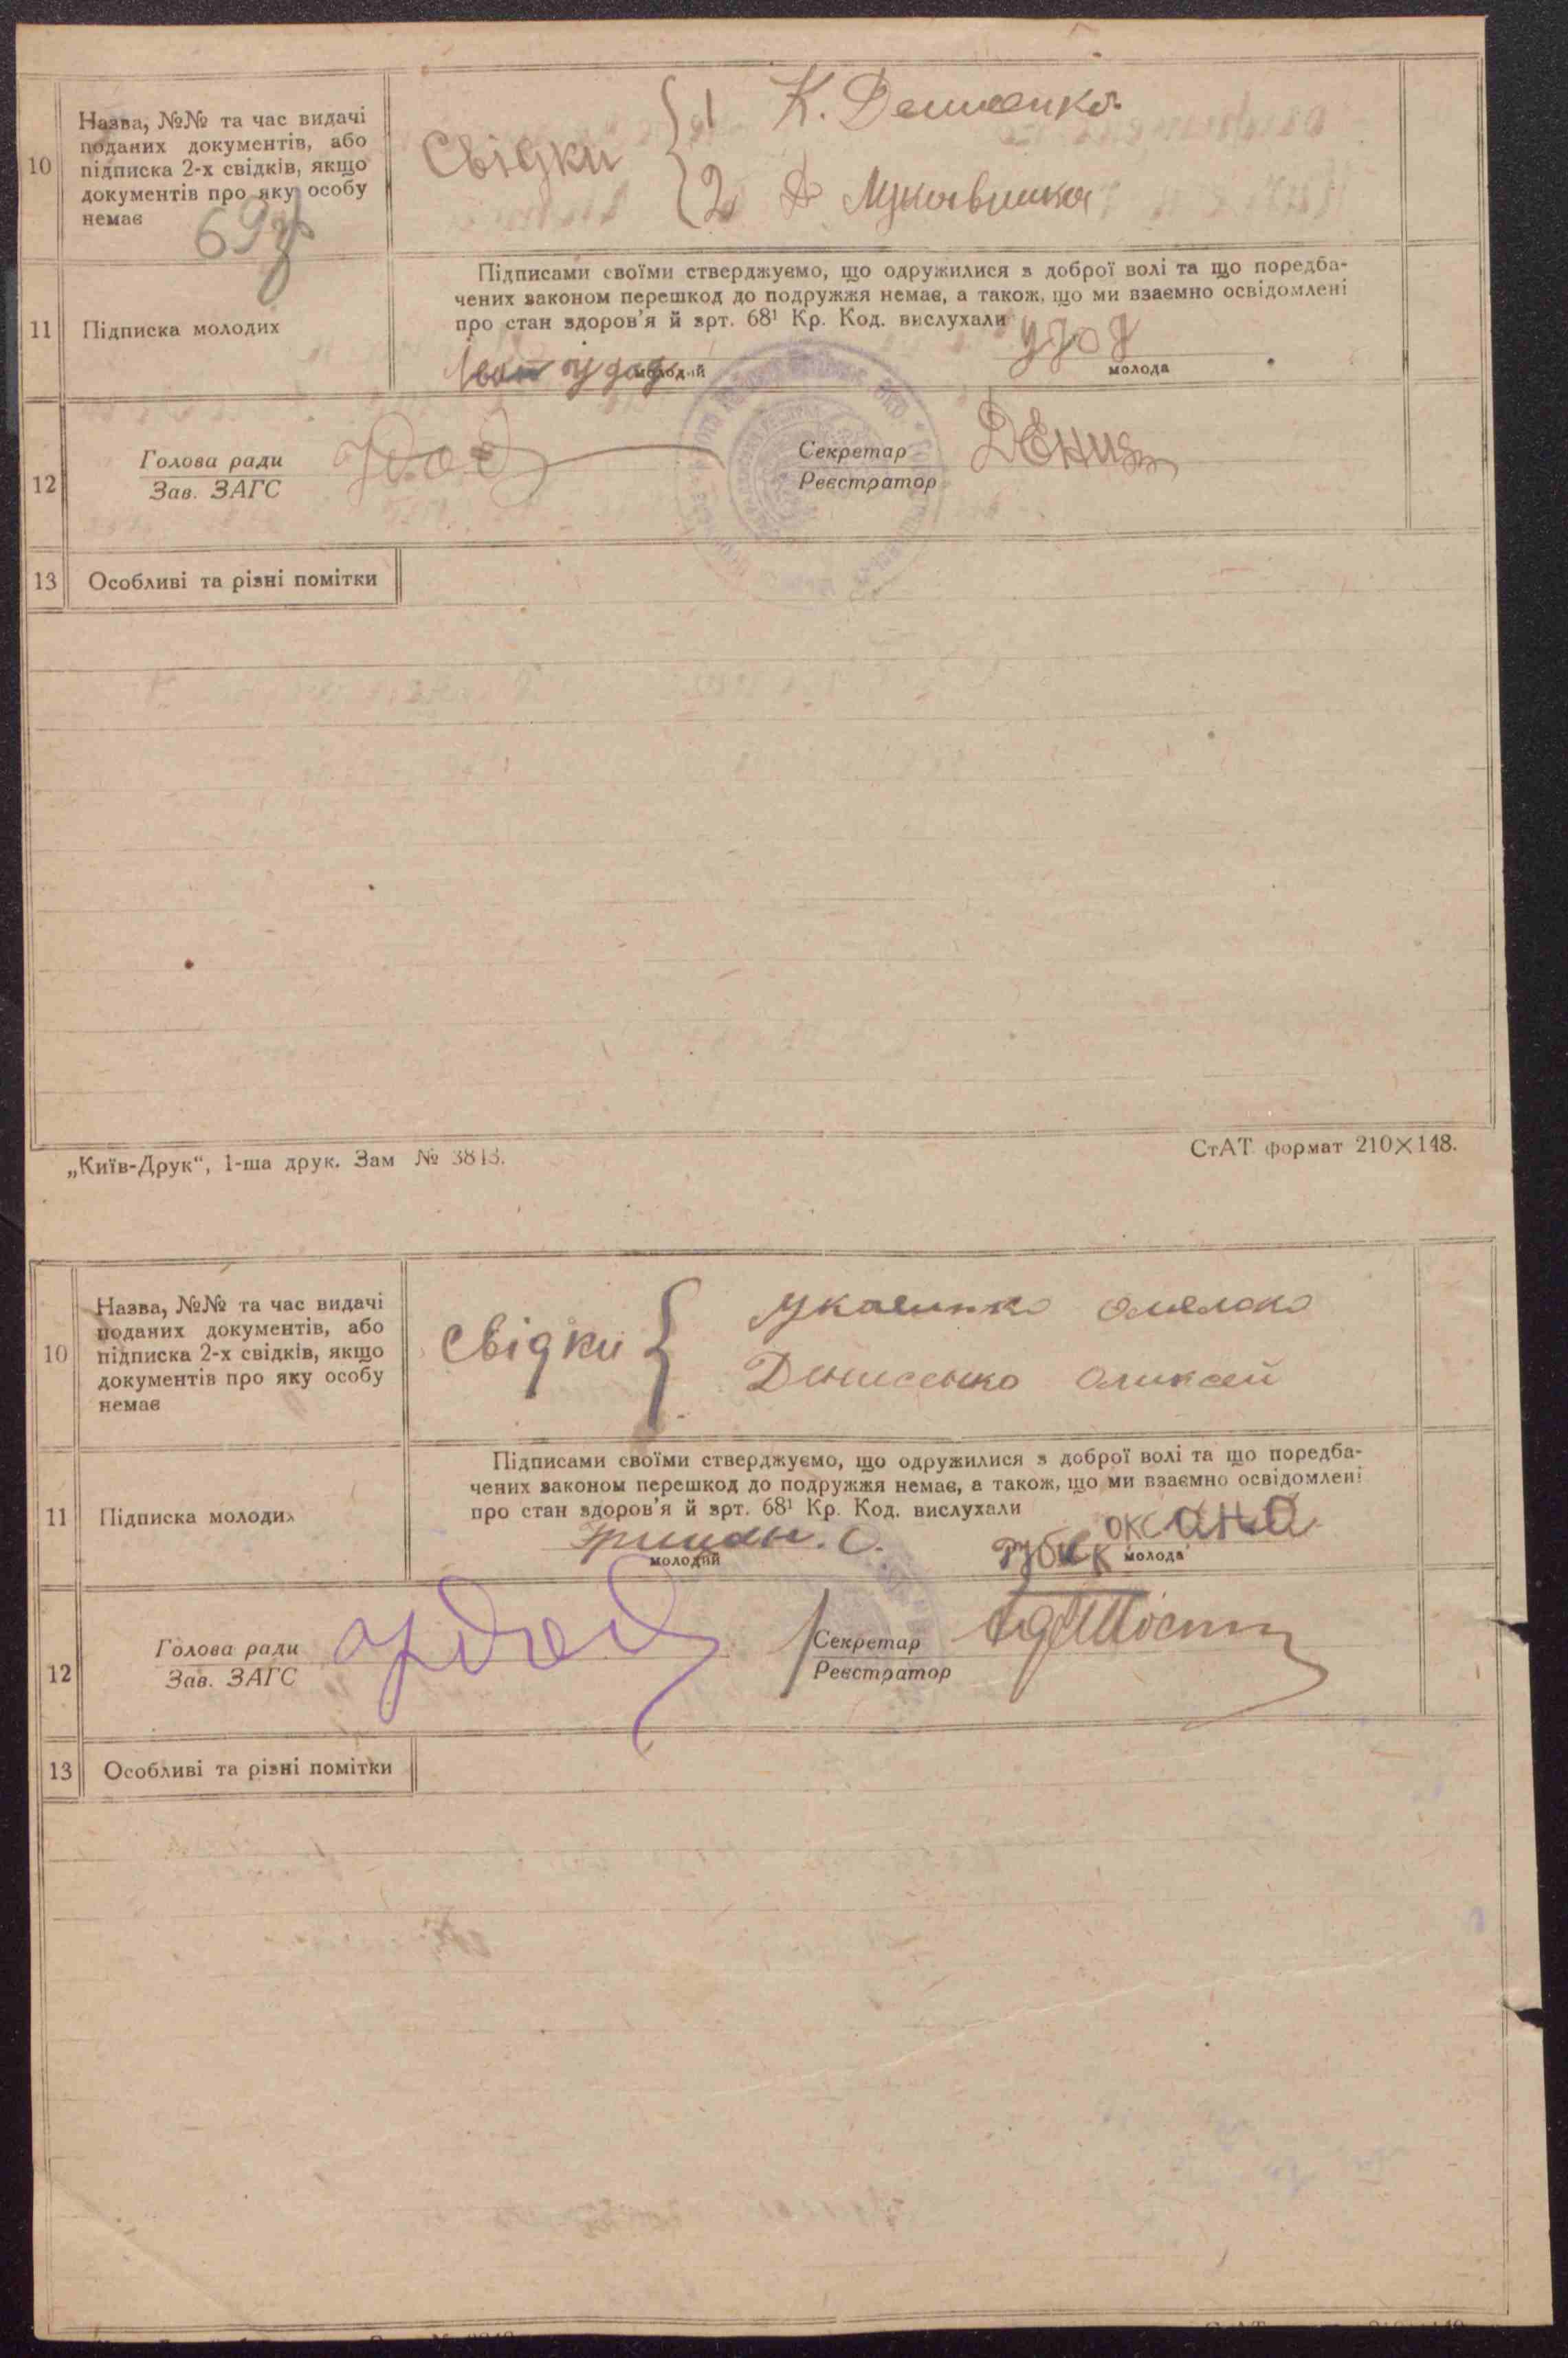 10
Назва, №№ та час видачі
поданих документів, або
підписка 2-х свідків, якщо
документів про яку особу
немає
Свідки
1 К.
2
69
11
Підписка молодих
Підписами своїми стверджуємо, що одружилися з доброї волі та що поредба-
чених законом перешкод до подружжя немає, а також, що ми взаємно освідомлені
про стан здоров'я й врт. 68¹ Кр. Код. вислухали
Іван Удод
молодий
Удод
молода
12
Голова ради
Зав. ЗАГС
Удод
Секретар
Реєстратор
13
Особливі та різні помітки
„Київ-Друк“, 1-ша друк. Зам № 3813.
СтАТ формат 210×148.
10
Назва, №№ та час видачі
поданих документів, або
підписка 2-х свідків, якщо
документів про яку особу
немає
Свідки
Денисенко Оликсей
11
Підписка молодих
Підписами своїми стверджуємо, що одружилися з доброї волі та що поредба-
чених законом перешкод до подружжя немає, а також, що ми взаємно освідомлені
про стан здоров'я й врт. 68¹ Кр. Код. вислухали
молодий
оксана
молода
12
Голова ради
Зав. ЗАГС
Удод
Секретар
Реєстратор
13
Особливі та різні помітки